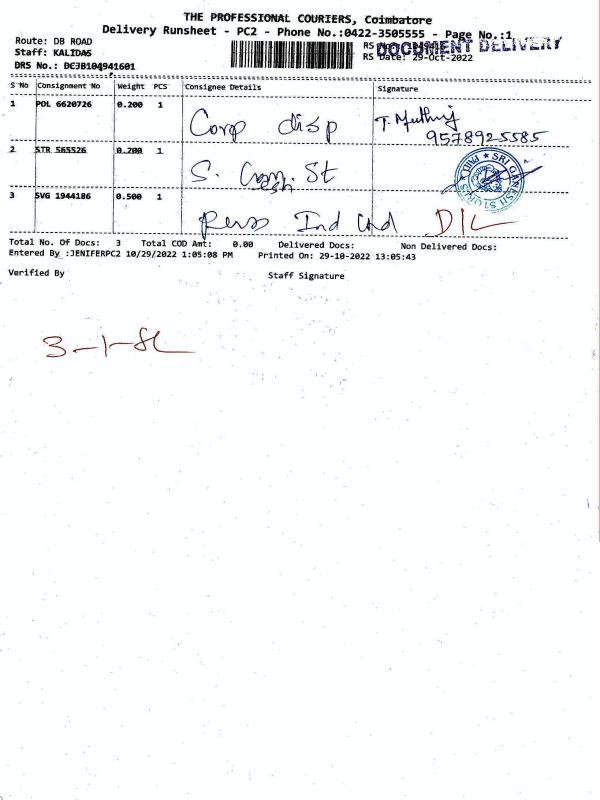 THE PROFESSIONAL COURIERS, Coimbatore
Delivery Runsheet - PC2 - Phone No.:0422-3505555 - Page No.:1
Route: DB ROAD
DOCUMENT DELIVERY
Staff: KALIDAS
RS Date: 29-Oct-2022
DRS No.:
S No Consignment No Weight PCS Consignee Details Signature
1 POL 6620726 0.200 1 Corp disp T. Muthuj
9578925585
2 STR 565526 0.200 1 S. St
SRI GANESH STORES
3 SVG 1944186 0.500 1 Ind D/L
Total No. Of Docs: 3 Total COD Amt: 0.00 Delivered Docs: Non Delivered Docs:
Entered By :JENIFERPC2 10/29/2022 1:05:08 PM Printed On: 29-10-2022 13:05:43
Verified By Staff Signature